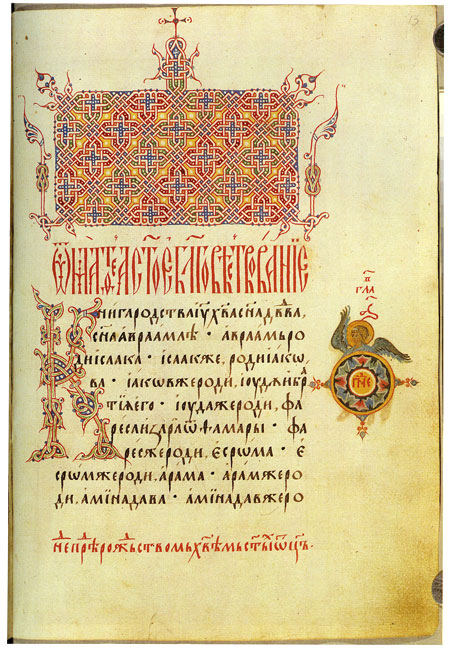 13
ѿ маѳеа ст҃ое бл҃говѣствованїе
гла
Книгародстваі҃ух҃васн҃адв҃два,
сн҃аавраамлѧ · авраамъро
дніісаака · ісаакже, родиіакѡ
ва · іаковжероди, іоудꙋибра
тїѧего · іоудажероди, фа
ресаизараѿѳамары · фа
ресжероди, есрома · е
срѡмжероди, арама · арамжеро
ди, амінадава · амінадавжеро
не҃прⷣерожьствомьх҃вѣмьст҃ыⷯѡц҃ъ·